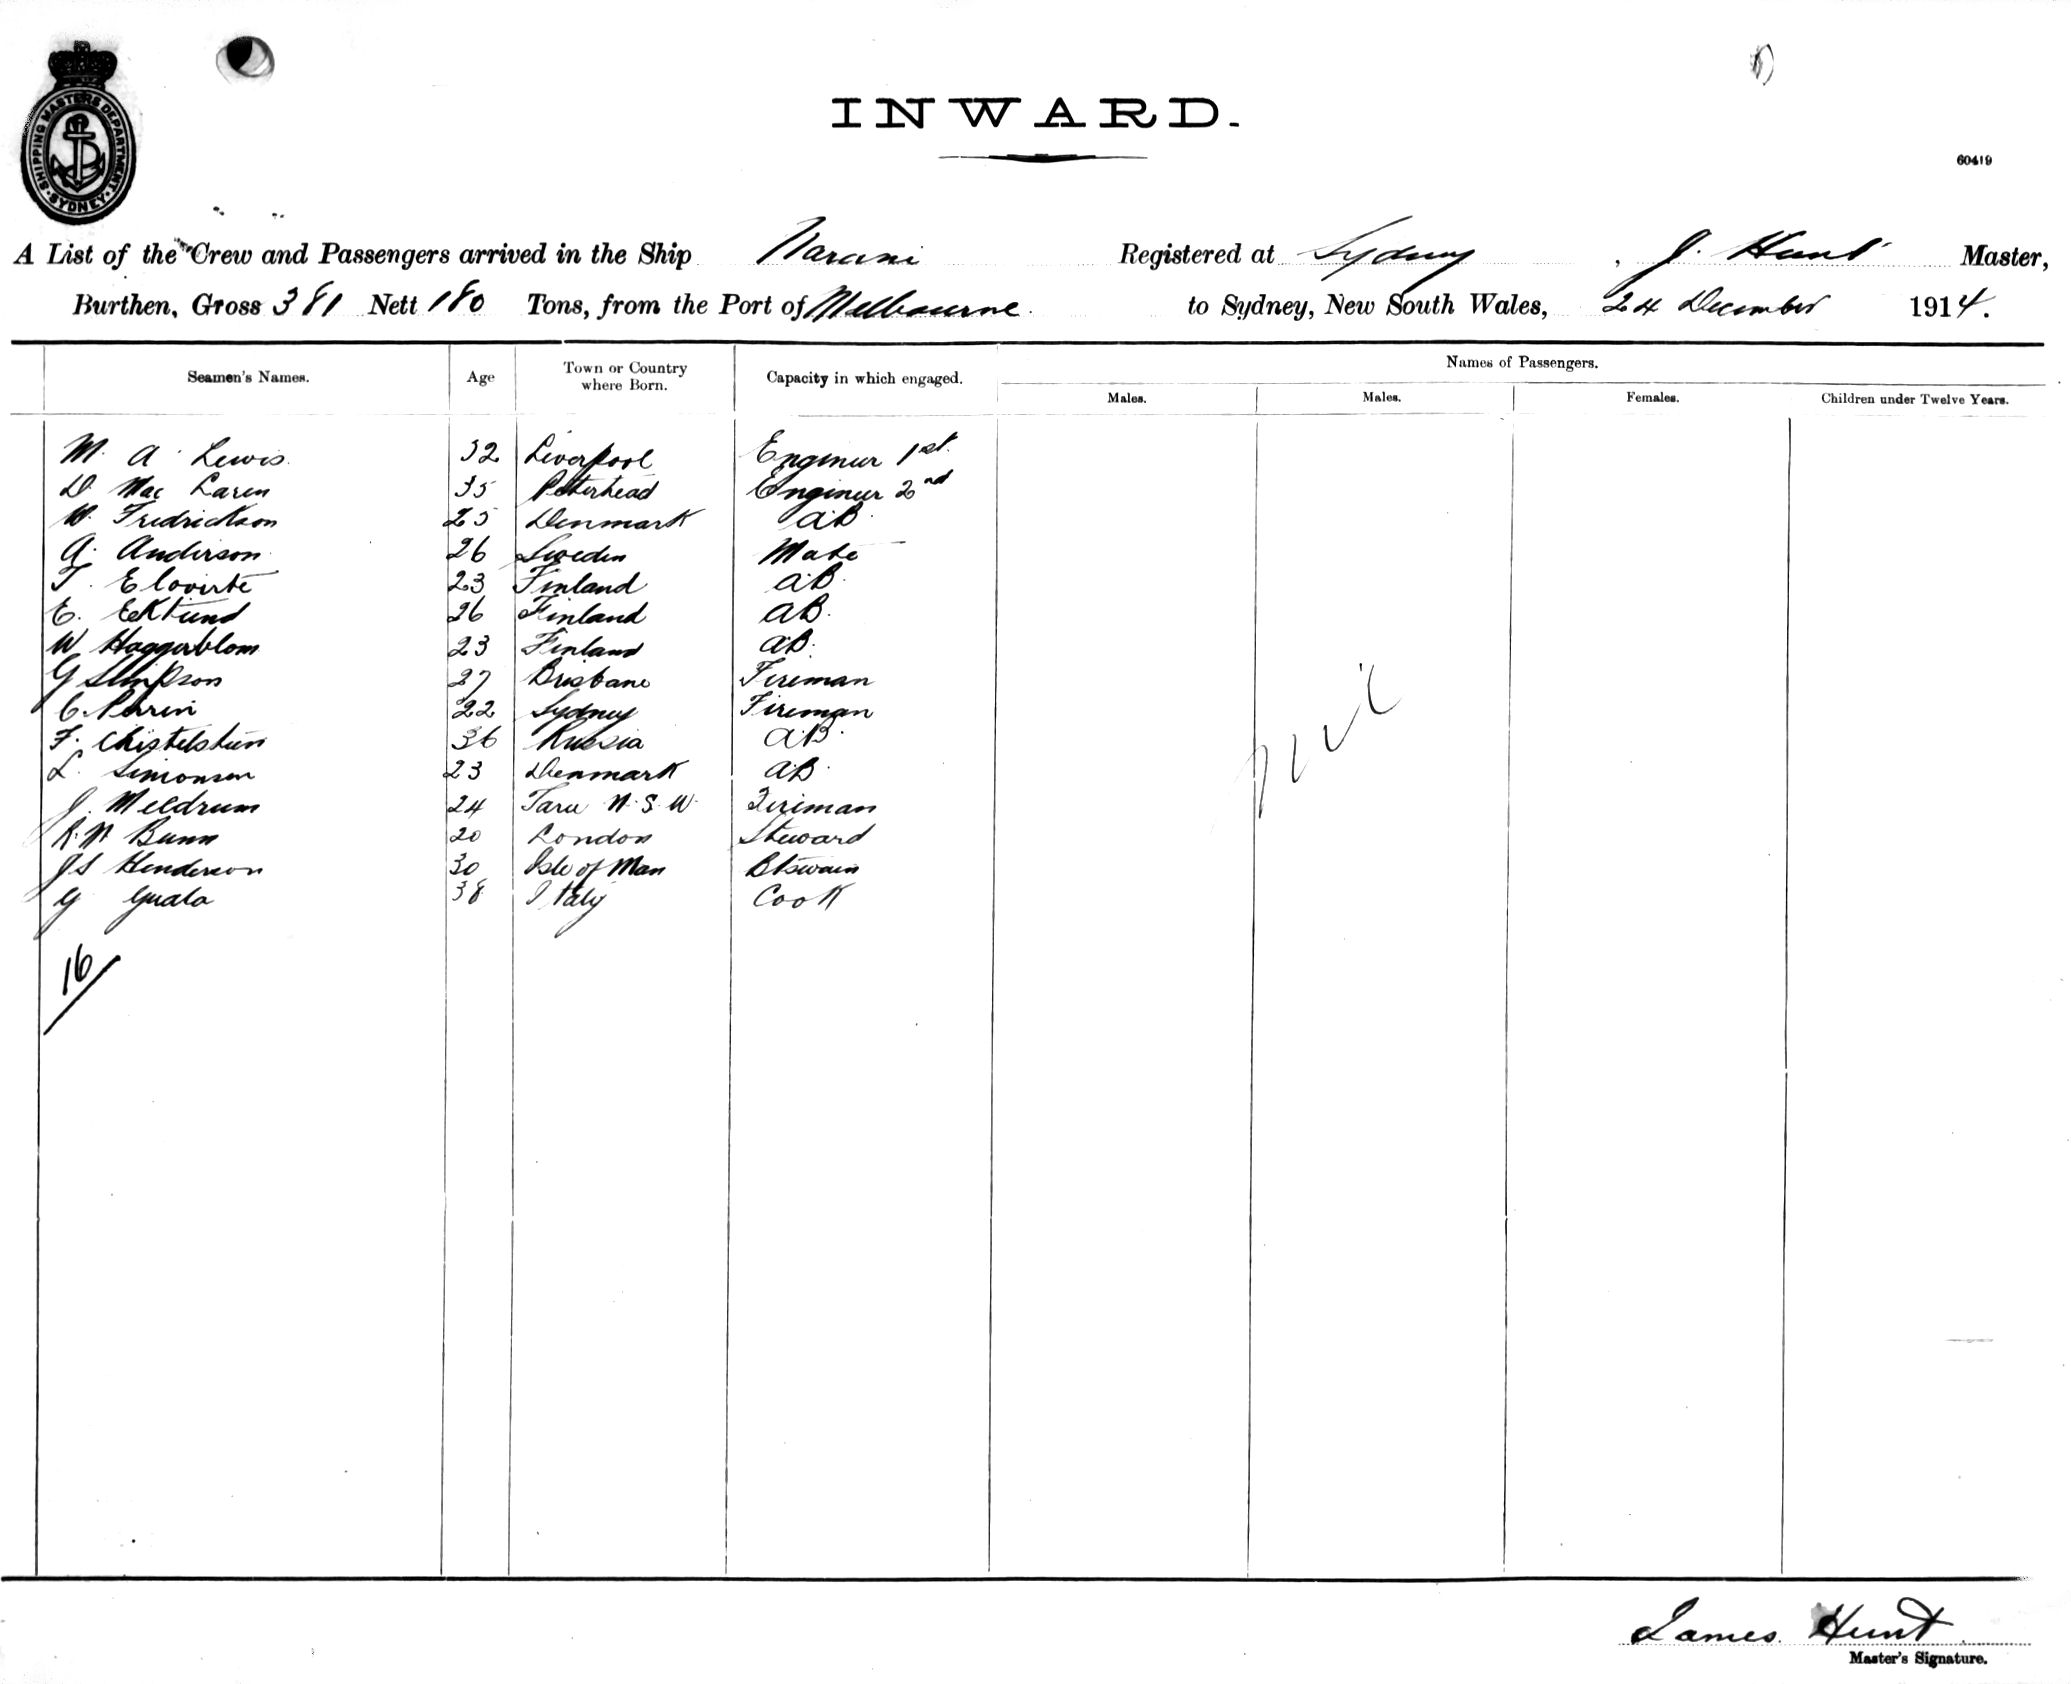 SHIPPING MASTERS DEPARTMENT
SYDNEY
INWARD.
60419
A List of the Crew and Passengers arrived in the Ship Narani Registered at Sydney, J. Hunt Master,
Burthen, Gross 381 Nett 180 Tons, from the Port of Melbourne to Sydney, New South Wales, 24 December 1914.
Seamen's Names. Age Town or Country where Born. Capacity in which engaged. Names of Passengers.
Males. Males. Females. Children under Twelve Years.
M. A. Lewis 32 Liverpool Engineer 1st
D. Mac Laren 35 Peterhead Engineer 2nd
W. Fredrickson 25 Denmark AB
A. Anderson 26 Sweden Mate
T. Elovirte 23 Finland AB
E. Ecklund 26 Finland AB
W Haggerblom 23 Finland AB
G Simpson 27 Brisbane Fireman
C. Perrin 22 Sydney Fireman
F. 36 Russia AB
L. Simonsen 23 Denmark AB
J. Meldrum 24 Taree N.S.W. Fireman
R. W Bunn 20 London Steward
JS Henderson 30 Isle of Man Btswain
G Guala 38 Italy Cook
nil
16/
James Hunt
Master's Signature.